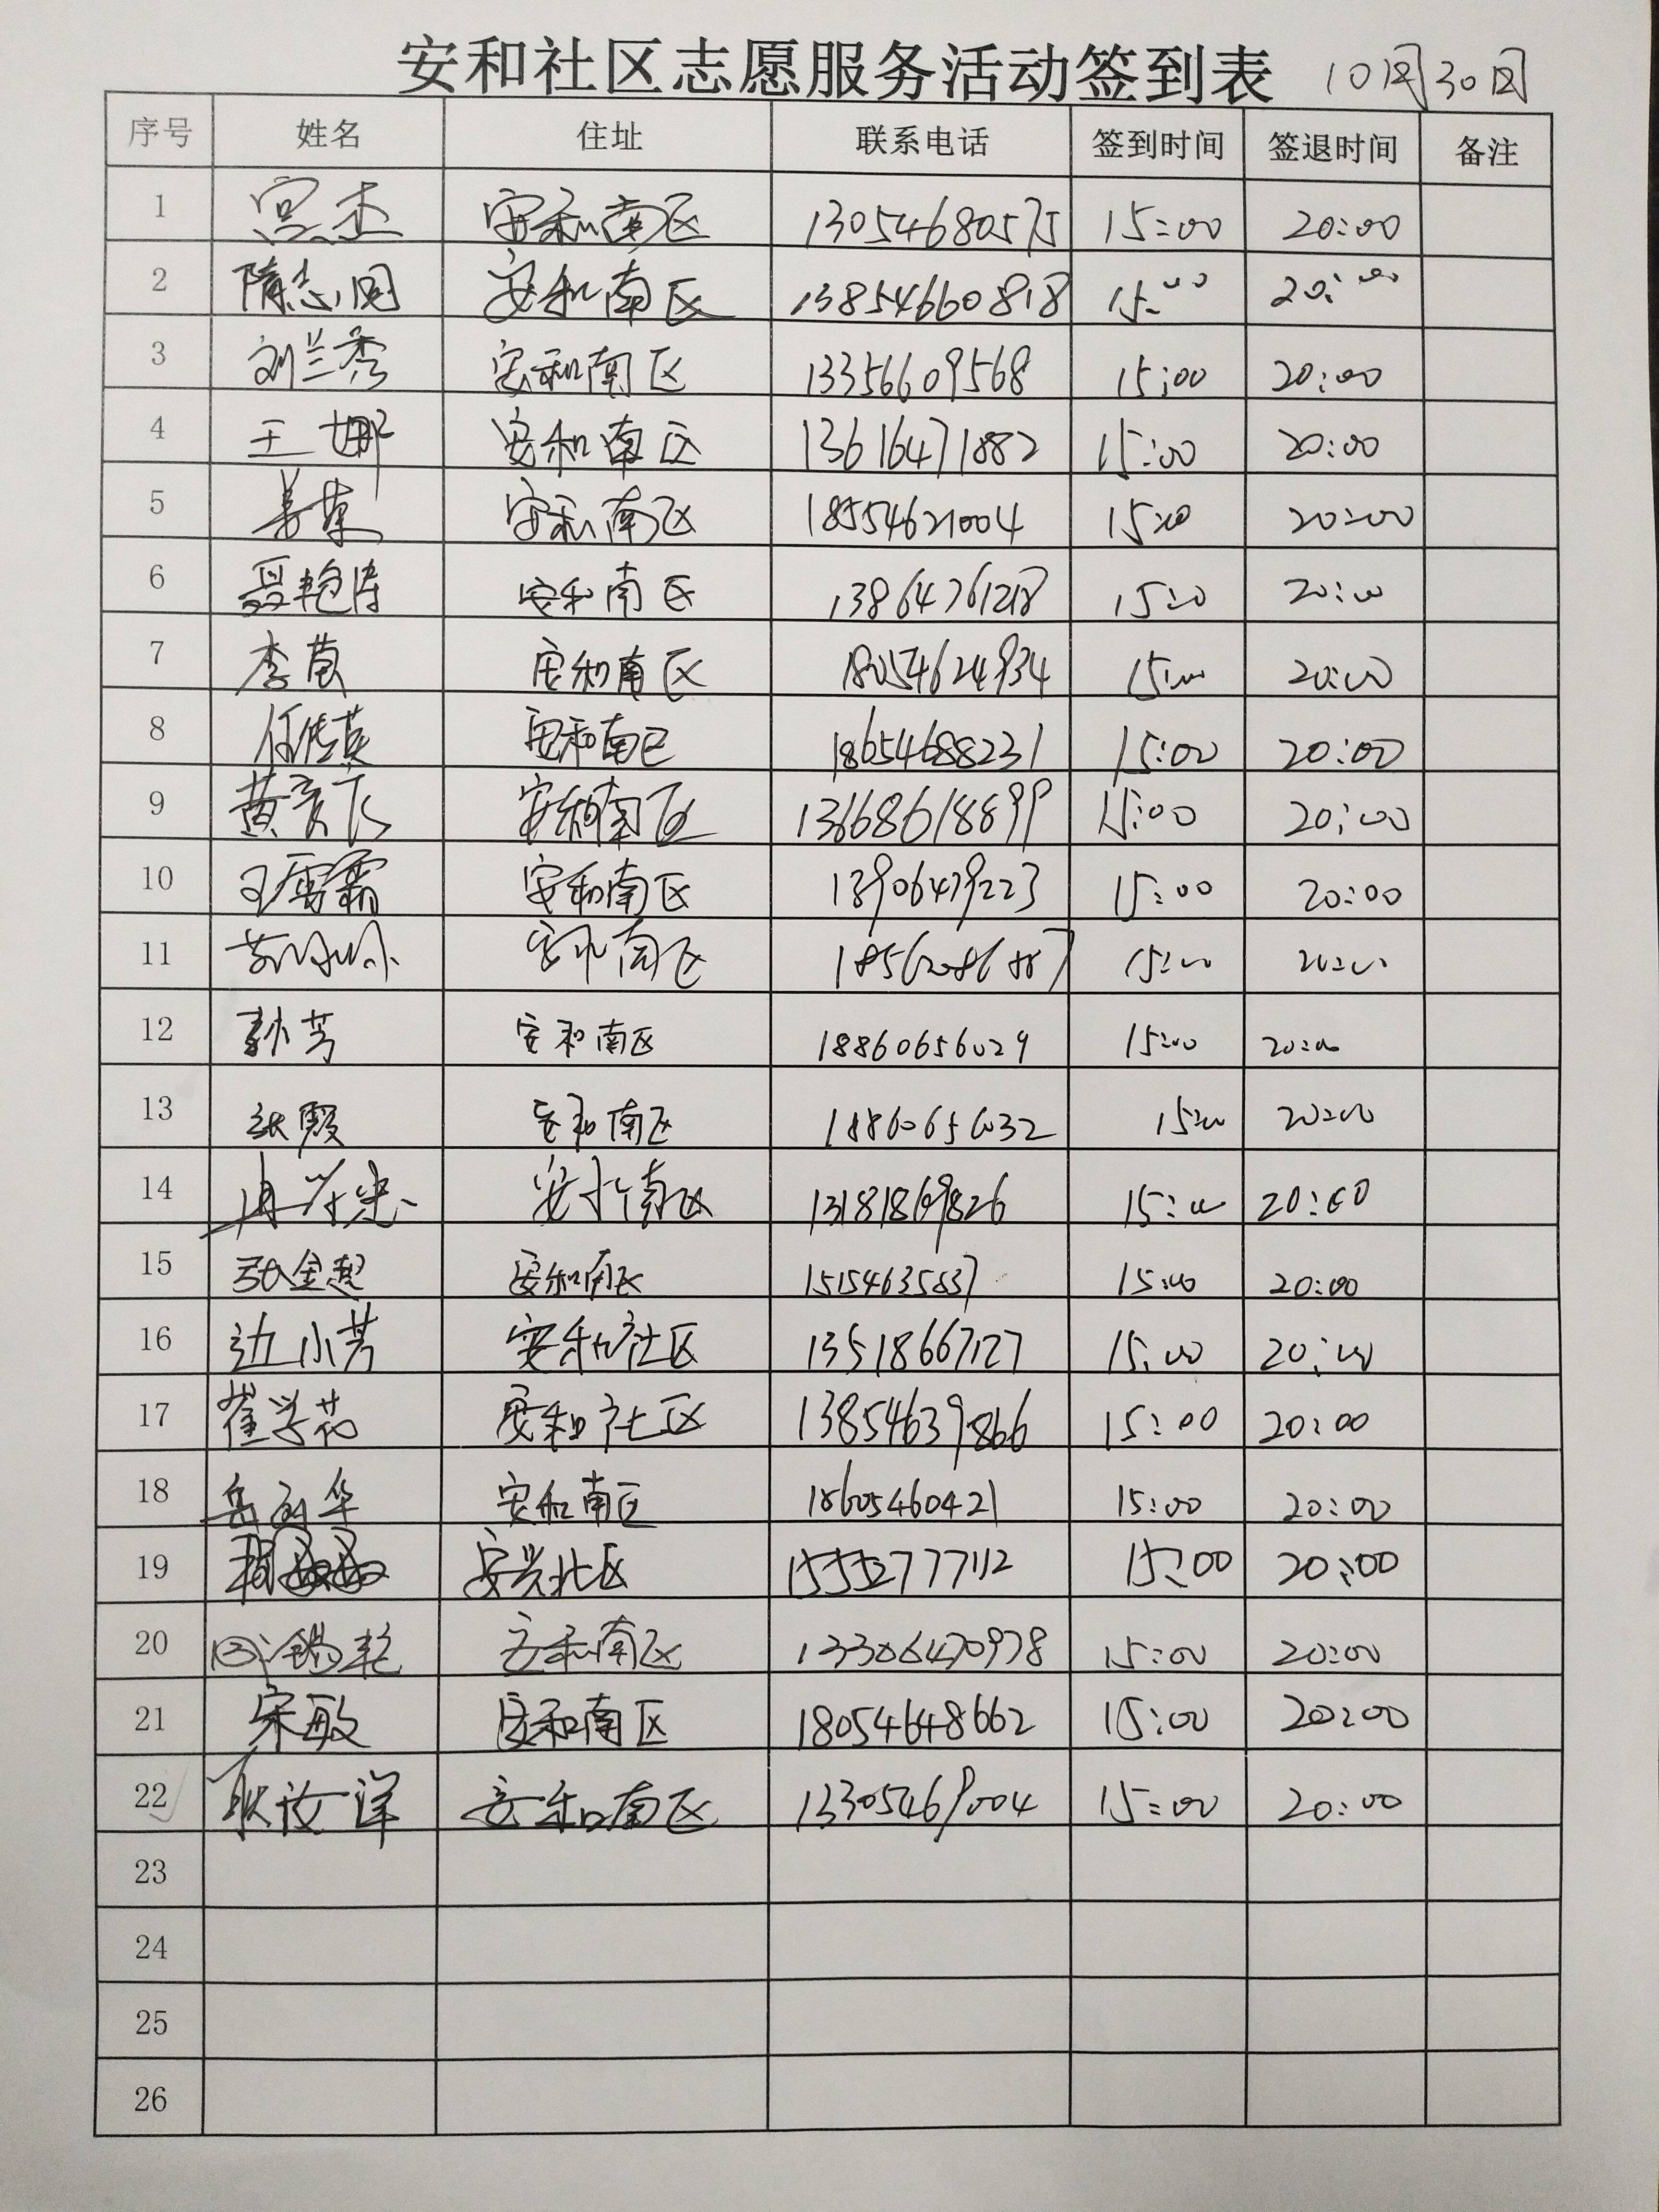 安和社区志愿服务活动签到表 10月30日
序号 姓名 住址 联系电话 签到时间 签退时间 备注
1 宫杰 安和南区 13054680575 15:00 20:00
2 隋志国 安和南区 13854660818 15:00 20:00
3 刘兰秀 安和南区 13356609568 15:00 20:00
4 王娜 安和南区 13616471882 15:00 20:00
5 安和南区 18554621004 15:00 20:00
6 聂艳涛 安和南区 13864761218 15:00 20:00
7 李萸 安和南区 18054624934 15:00 20:00
8 任传英 安和南区 18654688231 15:00 20:00
9 黄 安和南区 13668618899 15:00 20:00
10 王雪霜 安和南区 13906479223 15:00 20:00
11 安和南区 15:00 20:00
12 孙芳 安和南区 18860656029 15:00 20:00
13 张霞 安和南区 18860656032 15:00 20:00
14 安和南区 13181869826 15:00 20:00
15 张金超 安和南区 15154635837 15:00 20:00
16 边小芳 安和社区 13518667127 15:00 20:00
17 崔学花 安和社区 13854639866 15:00 20:00
18 岳丽华 安和南区 18605460421 15:00 20:00
19 安兴北区 15552777112 15:00 20:00
20 安和南区 13306470978 15:00 20:00
21 宋敏 安和南区 18054648662 15:00 20:00
22 耿汝详 安和南区 13305469004 15:00 20:00
23
24
25
26